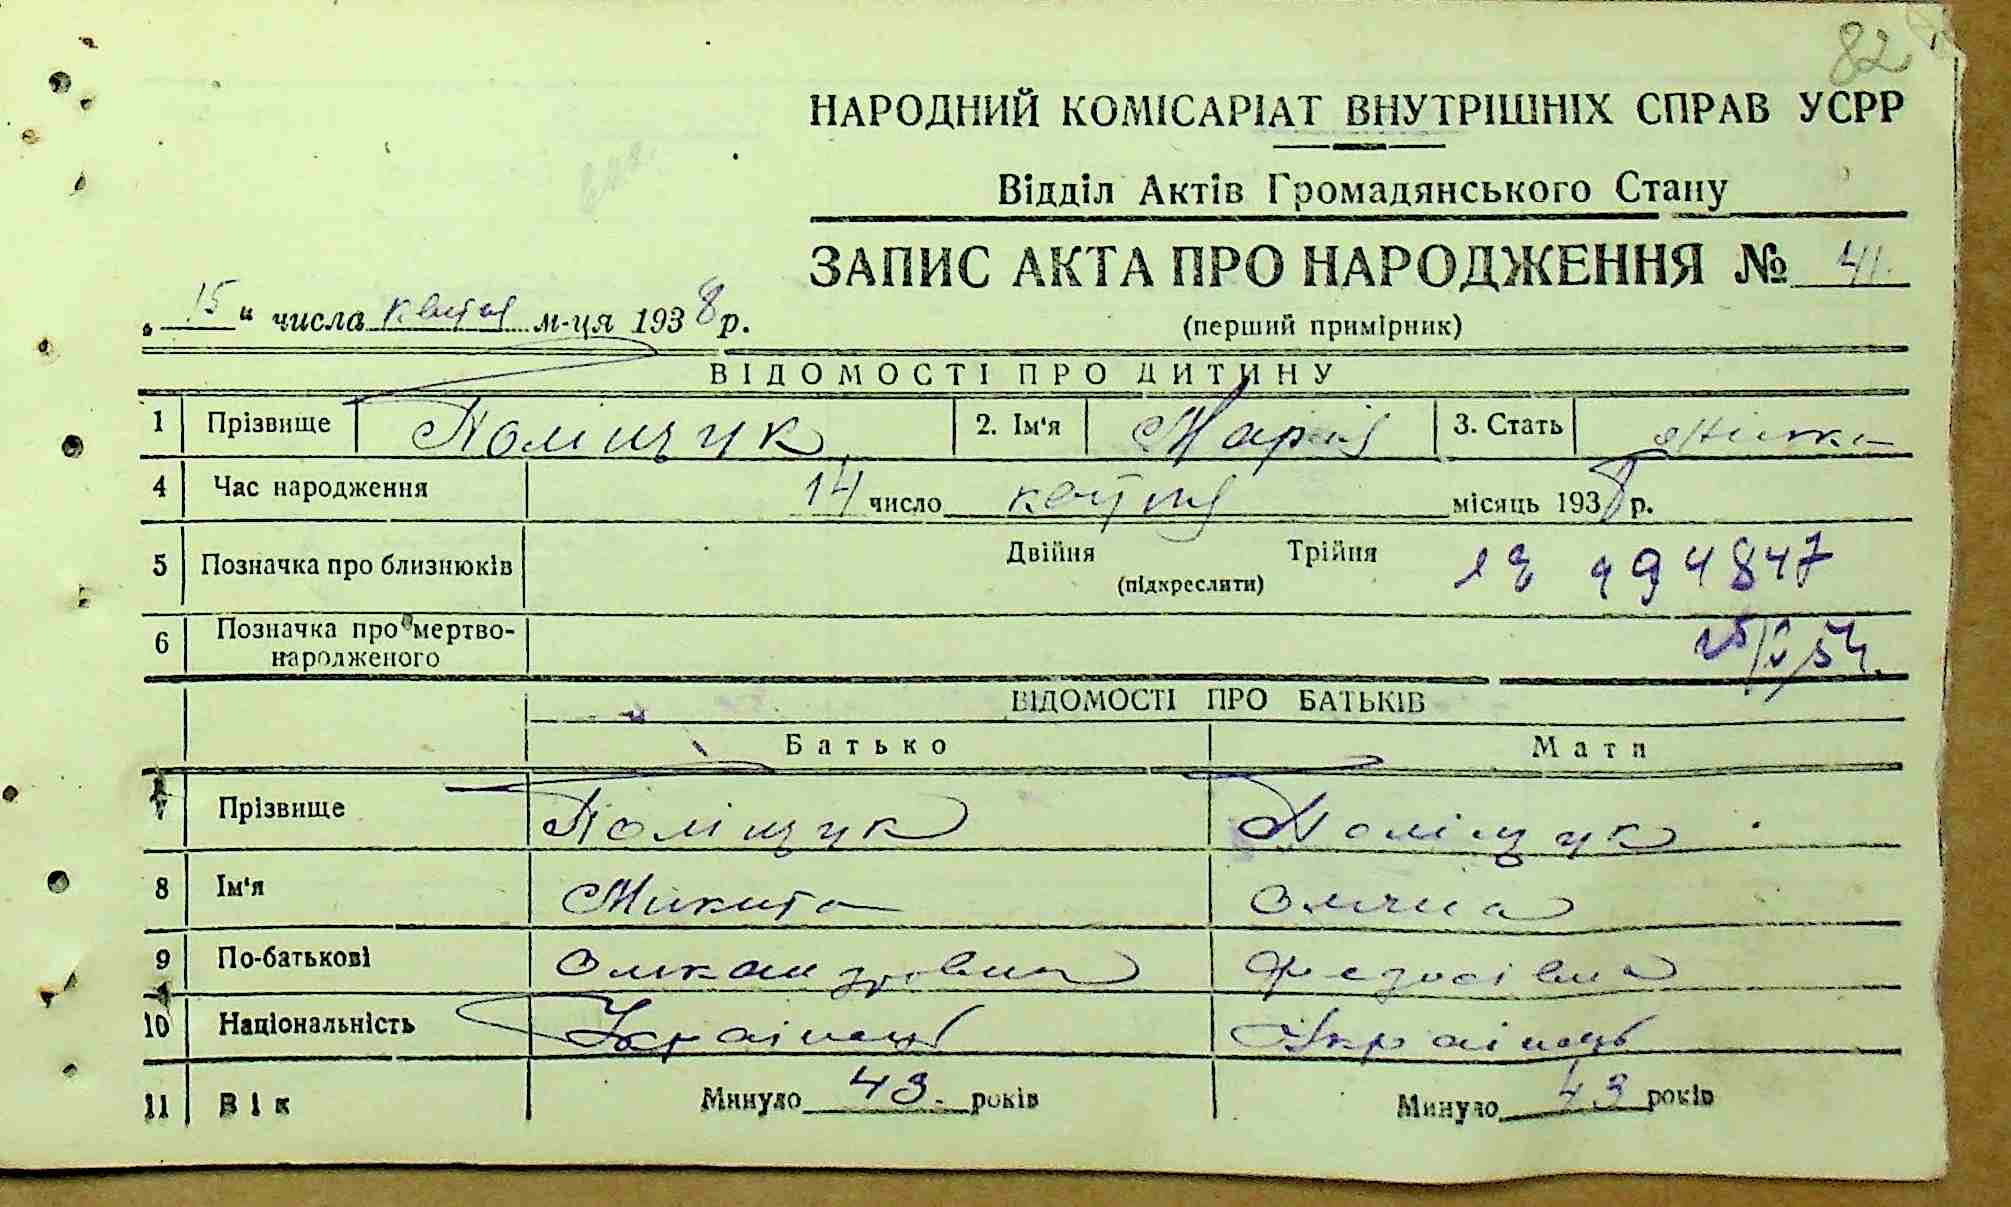 82
НАРОДНИЙ КОМІСАРІАТ ВНУТРІШНІХ СПРАВ УСРР
Відділ Актів Громадянського Стану
ЗАПИС АКТА ПРО НАРОДЖЕННЯ № 41.
„15" числа квітня м-ця 1938 р.
(перший примірник)
ВІДОМОСТІ ПРО ДИТИНУ
1 Прізвище Поліщук 2. Ім'я Марія 3. Стать жіноча
4 Час народження 14 число квітня місяць 1938 р.
5 Позначка про близнюків Двійня Трійня
(підкреслити)
494847
6 Позначка про мертво-
народженого
25/V/54.
ВІДОМОСТІ ПРО БАТЬКІВ
Батько Мати
7 Прізвище Поліщук Поліщук
8 Ім'я Микита
9 По-батькові Федосівна
10 Національність Українець Українець
11 Вік Минуло 43. років Минуло 43 років